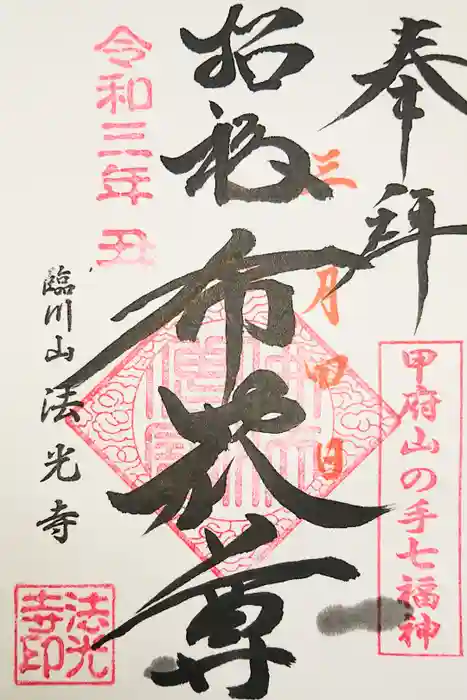 奉拝
甲府山の手七福神
三月四日
招福 布袋尊
令和三年 丑
臨川山 法光寺
法光
寺印